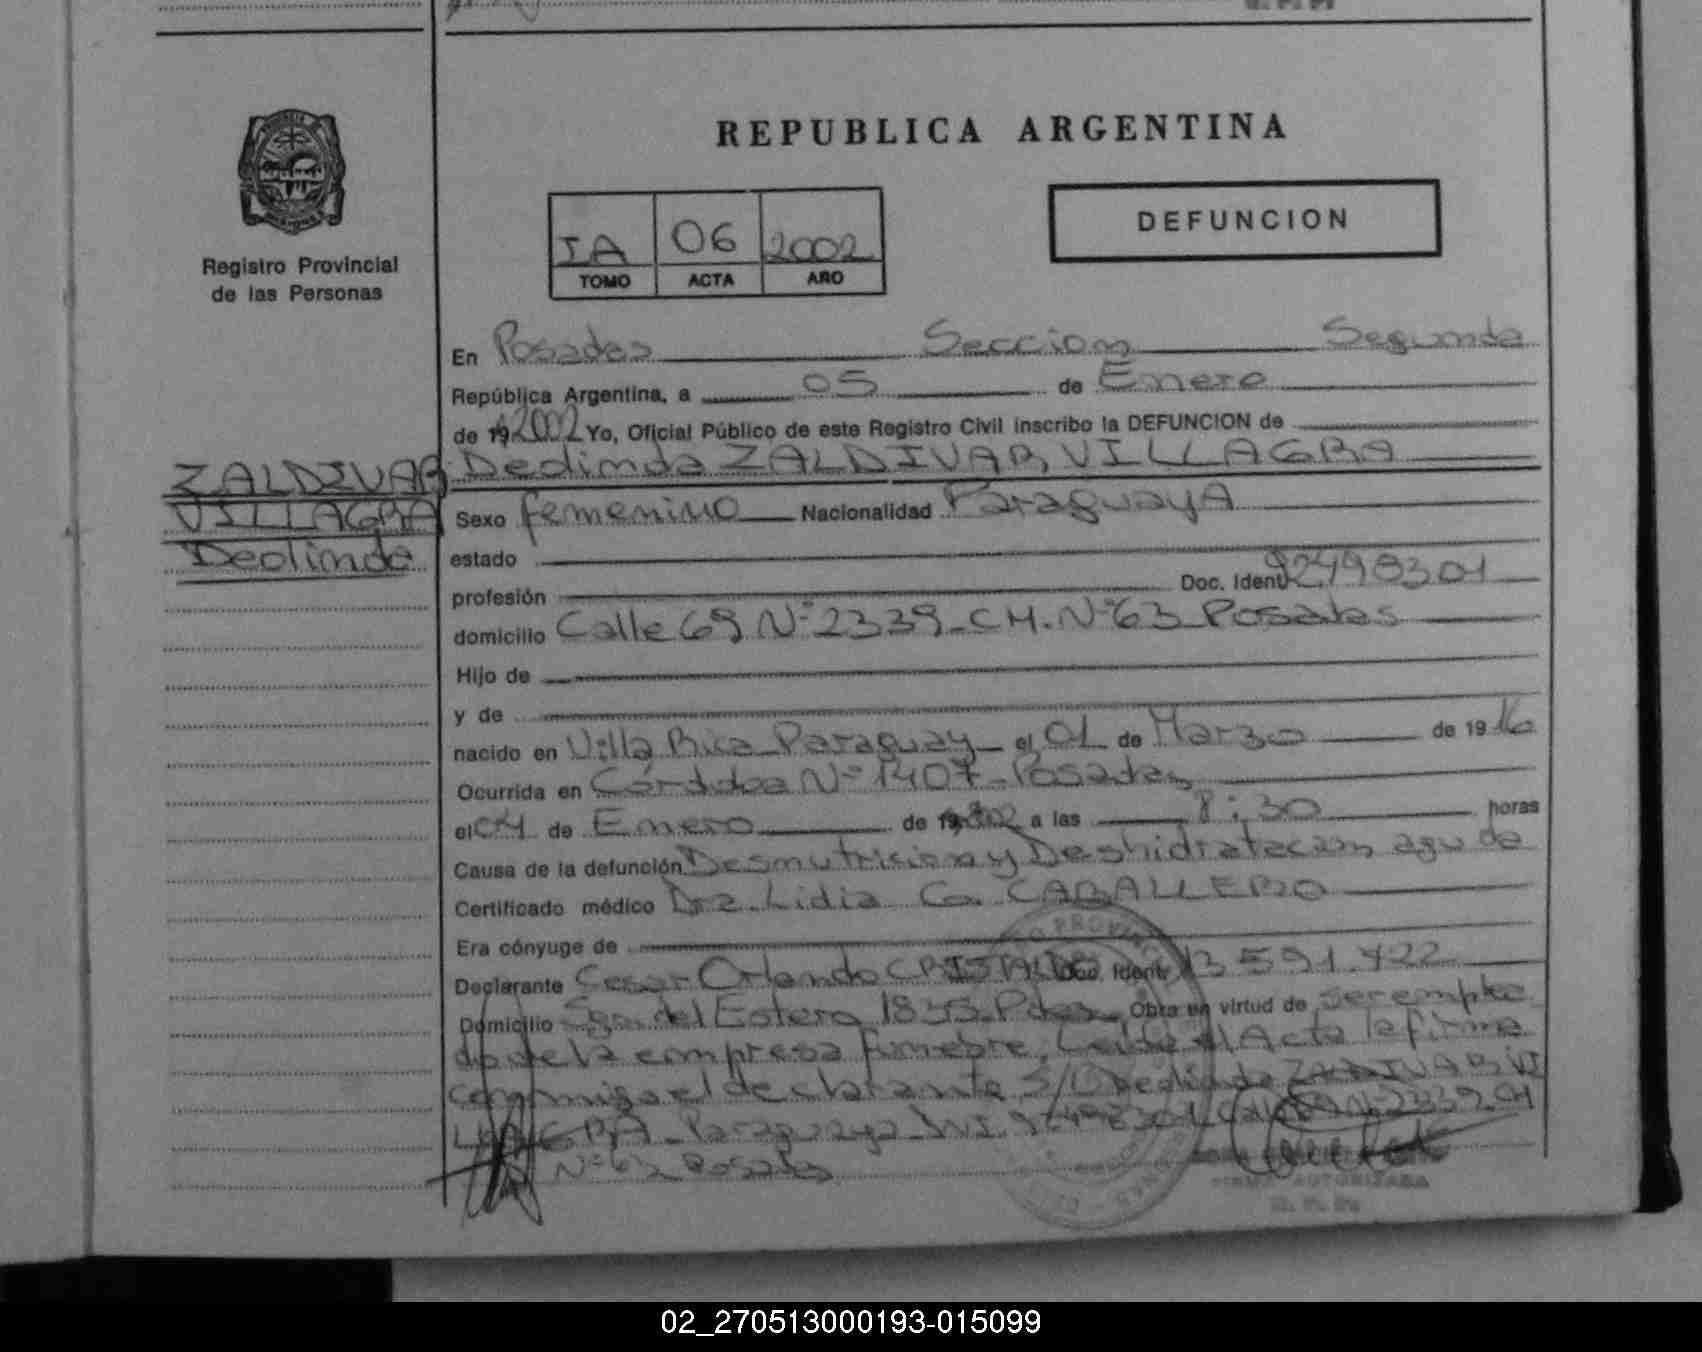 REPUBLICA ARGENTINA
DEFUNCION
IA 06 2002
TOMO ACTA AÑO
Registro Provincial
de las Personas
En Posadas Seccion Segunda
República Argentina, a 05 de Enero
de 19 2002 Yo, Oficial Público de este Registro Civil inscribo la DEFUNCION de
ZALDIVAR
VILLAGRA
Deolinda
Deolinda ZALDIVAR VILLAGRA
Sexo femenino Nacionalidad ParaguayA
estado
profesión Doc. Ident 92498301
domicilio Calle 69 Nº 2339_CH. Nº 63_Posadas
Hijo de
y de
nacido en Villa Rica_Paraguay_ el 01 de Marzo de 19 16
Ocurrida en Córdoba Nº 1407_Posadas
el 04 de Enero de 2002 a las 8:30 horas
Causa de la defunción Desnutricion y Deshidratacion aguda
Certificado médico Dra. Lidia G. CABALLERO
Era cónyuge de
Declarante Cesar Orlando CRISTALDO Doc. Ident 13 591.422
Domicilio Sgo. del Estero 1835_Pdas_ Obra en virtud de ser emplea
do de la empresa funebre, Leida el Acta la firma
conmigo el declarante S/ Deolinda ZALDIVAR VI
LLAGRA_Paraguaya_DNI. 92498301_Calle 69 Nº 2339_CH
Nº 63_Posadas
FIRMA AUTORIZADA
R. P. P.
02_270513000193-015099